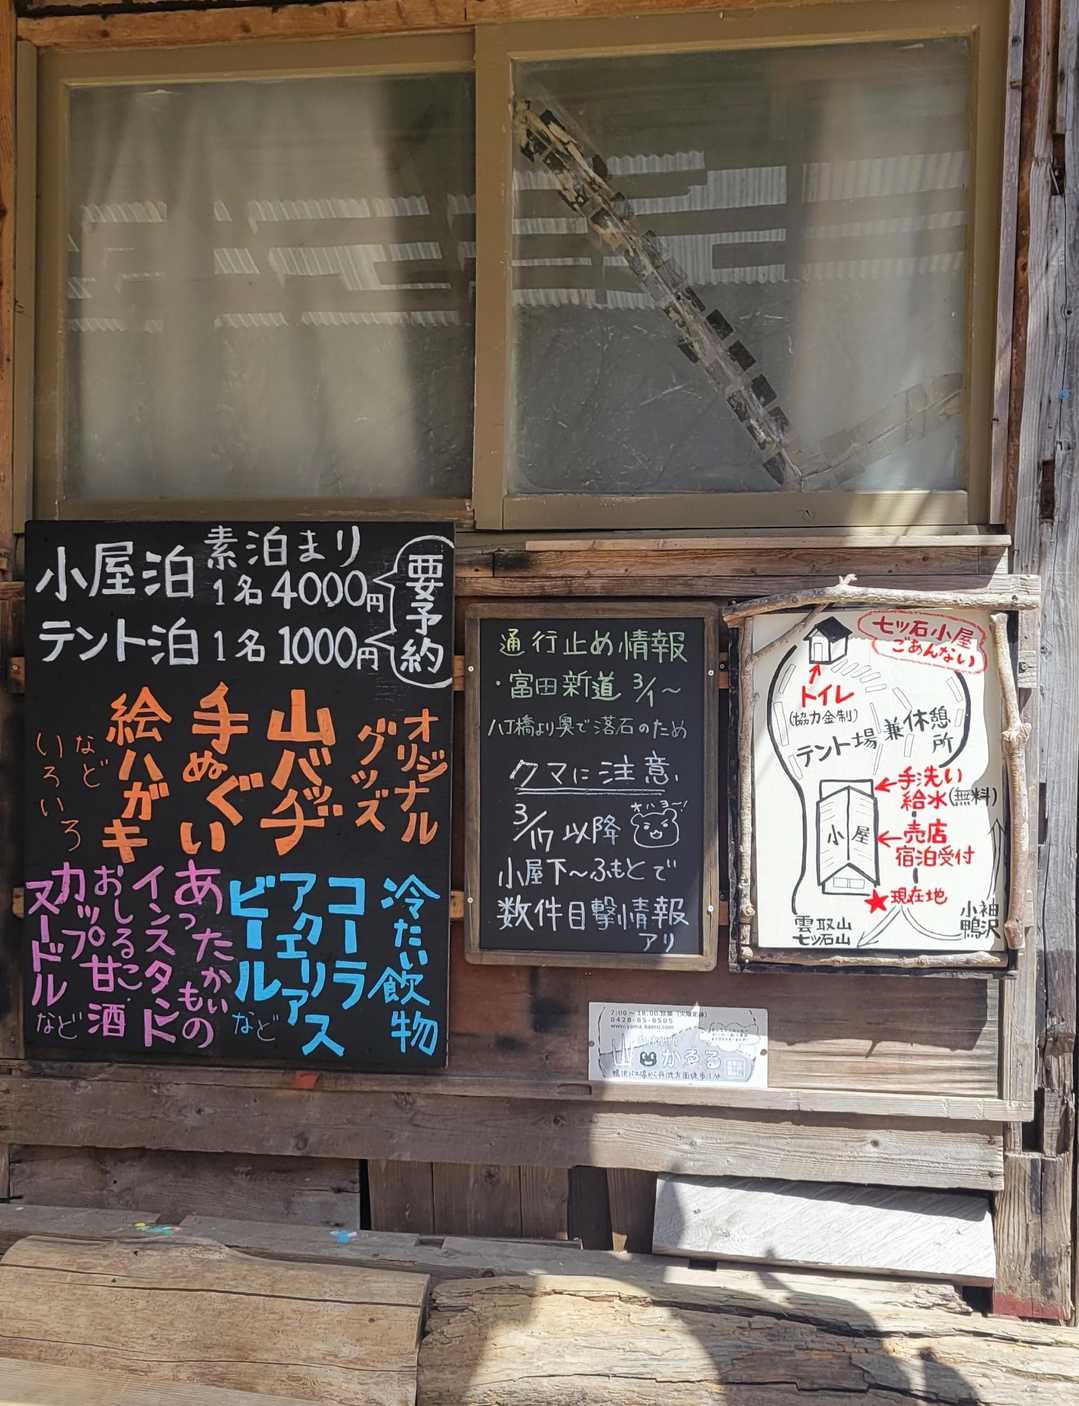 小屋泊 素泊まり
1名 4000円
テント泊 1名 1000円
要予約
オリジナル
グッズ
山バッヂ
手ぬぐい
絵ハガキ
など
いろいろ
冷たい飲物
コーラ
アクエリアス
ビール
など
あったかいもの
インスタント
おしるこ
甘酒
カップ
ヌードル
など
通行止め情報
・富田新道 3/1〜
八丁橋より奥で落石のため
クマに注意
3/17 以降
オハヨー!
小屋下〜ふもとで
数件目撃情報
アリ
七ッ石小屋
ごあんない
トイレ
(協力金制)
テント場 兼休憩所
手洗い
給水(無料)
小屋
売店
宿泊受付
現在地
雲取山
七ッ石山
小袖
鴨沢
0428-85-8505
山 かゑる